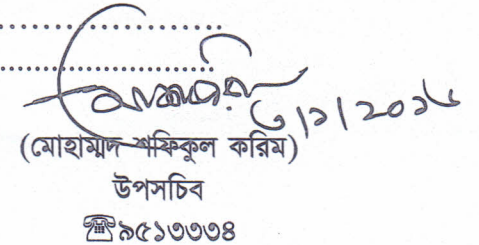 ৩/১/২০১৬
(মোহাম্মদ শফিকুল করিম)
উপসচিব
☎৯৫১৩৩৩৪